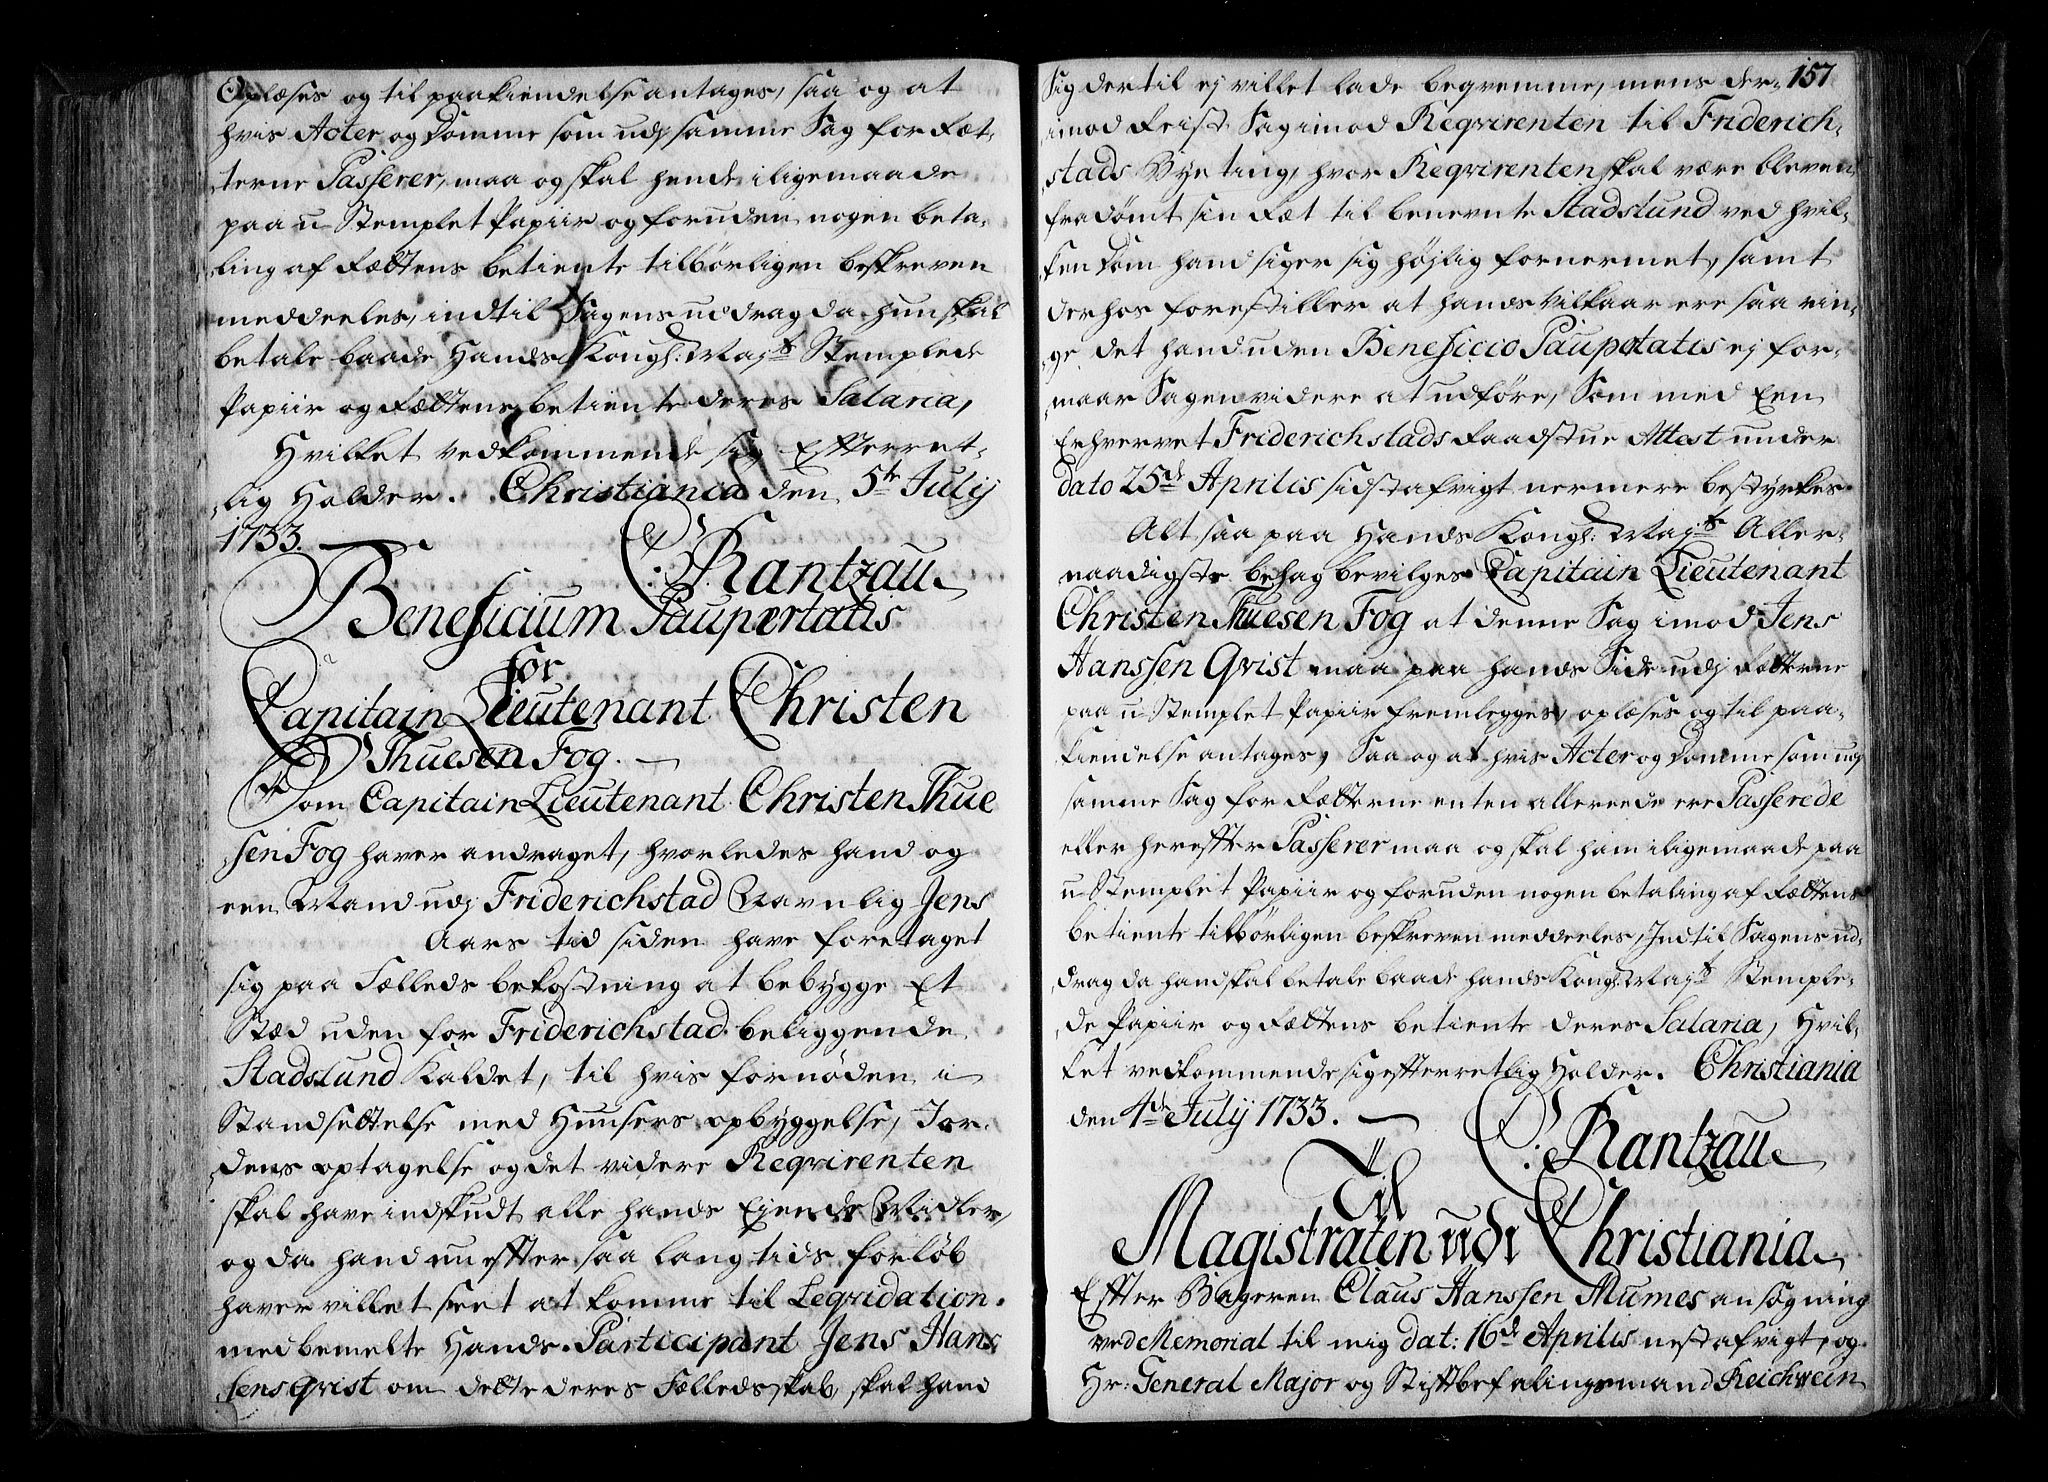 Oplæses og til paakiendelse antages, saa og at
hvis Acter og Domme som udj samme Sag for Ret-
terne Passerer, maa og skal hende iligemaade
paa u-Stemplet Papiir og foruden nogen beta-
ling af Rettens betiente tilbörligen beskreven
meddeeles, indtil Sagens uddrag da hun skal
betale baade Hands Kongl: Mayts Stemplede
Papiir og Rettens betiente deres Salaria,
Hvilket vedkommende sig Efterret-
lig Holder. Christiania den 5te Julij
1733.
C: Rantzau
Beneficium Paupertatis
for
Capitain Lieutenant Christen
Thuesen Fog.
Som Capitain Lieutenant Christen Thue
sen Fog haver andraget, hvorledes hand og
een Mand udj Friderichstad Navnlig Jens
Aars tid siden have foretaget
sig paa Fælleds bekostning at bebygge Et
Stæd uden for Friderichstad beliggende
Stadslund Kaldet, til hvis fornöden i
Standsettelse med Huusers opbyggelse, Jor-
dens optagelse og det videre Reqvirenten
skal have indskudt alle hands Eyende Midler,
og da hand nu effter saa lang tids forlöb
haver villet seet at komme til Leqvidation
med bemelte Hands Participant Jens Hans
sens Qvist om dette deres Fælledsskab, skal hand
157
Sig dertil ej villet lade beqvemme, mens der-
imod Reist Sag imod Reqvirenten til Friderich-
stads Bye ting, hvor Reqvirenten skal være bleven
fradömt sin Ret til benevnte Stadslund ved hvil-
ken Dom hand siger sig höjlig fornermet, samt
derhos forestiller at hands Vilkaar ere saa rin-
ge det hand uden Beneficio Paupertatis ej for-
maar Sagen videre at udföre, Som med Een
Erhvervet Friderichstads Raadstue Attest under
dato 25de Aprilis sidst afvigt nermere bestyrkes.
Alt saa paa Hands Kongl: Mayts Aller-
naadigste behag bevilges Capitain Lieutenant
Christen Thuesen Fog at denne Sag imod Jens
Hanssen Qvist maa paa hands Side udj Retterne
paa u-Stemplet Papiir fremlegges, oplæses og til paa-
kiendelse antages, Saa og at hvis Acter og Domme som udj
samme Sag for Retterne enten allereede ere Passerede
eller hereffter Passerer maa og skal ham iligemaade paa
u-Stemplet Papiir og foruden nogen betaling af Rettens
betiente tilbörligen beskreven meddeeles, Indtil Sagens ud-
drag da hand skal betale baade hands Kongl: Mayts Stemple-
de Papiir og Rettens betiente deres Salaria, Hvil-
ket vedkommende sig efterretlig Holder. Christiania
den 4de Julij 1733.
C: Rantzau
Til
Magistraten udi Christiania
Effter Bageren Claus Hanssen Mumes ansögning
ved Memorial til mig dat: 16de Aprilis nest afvigt, og
Hr: General Major og Stiftbefalingsmand Reichwein